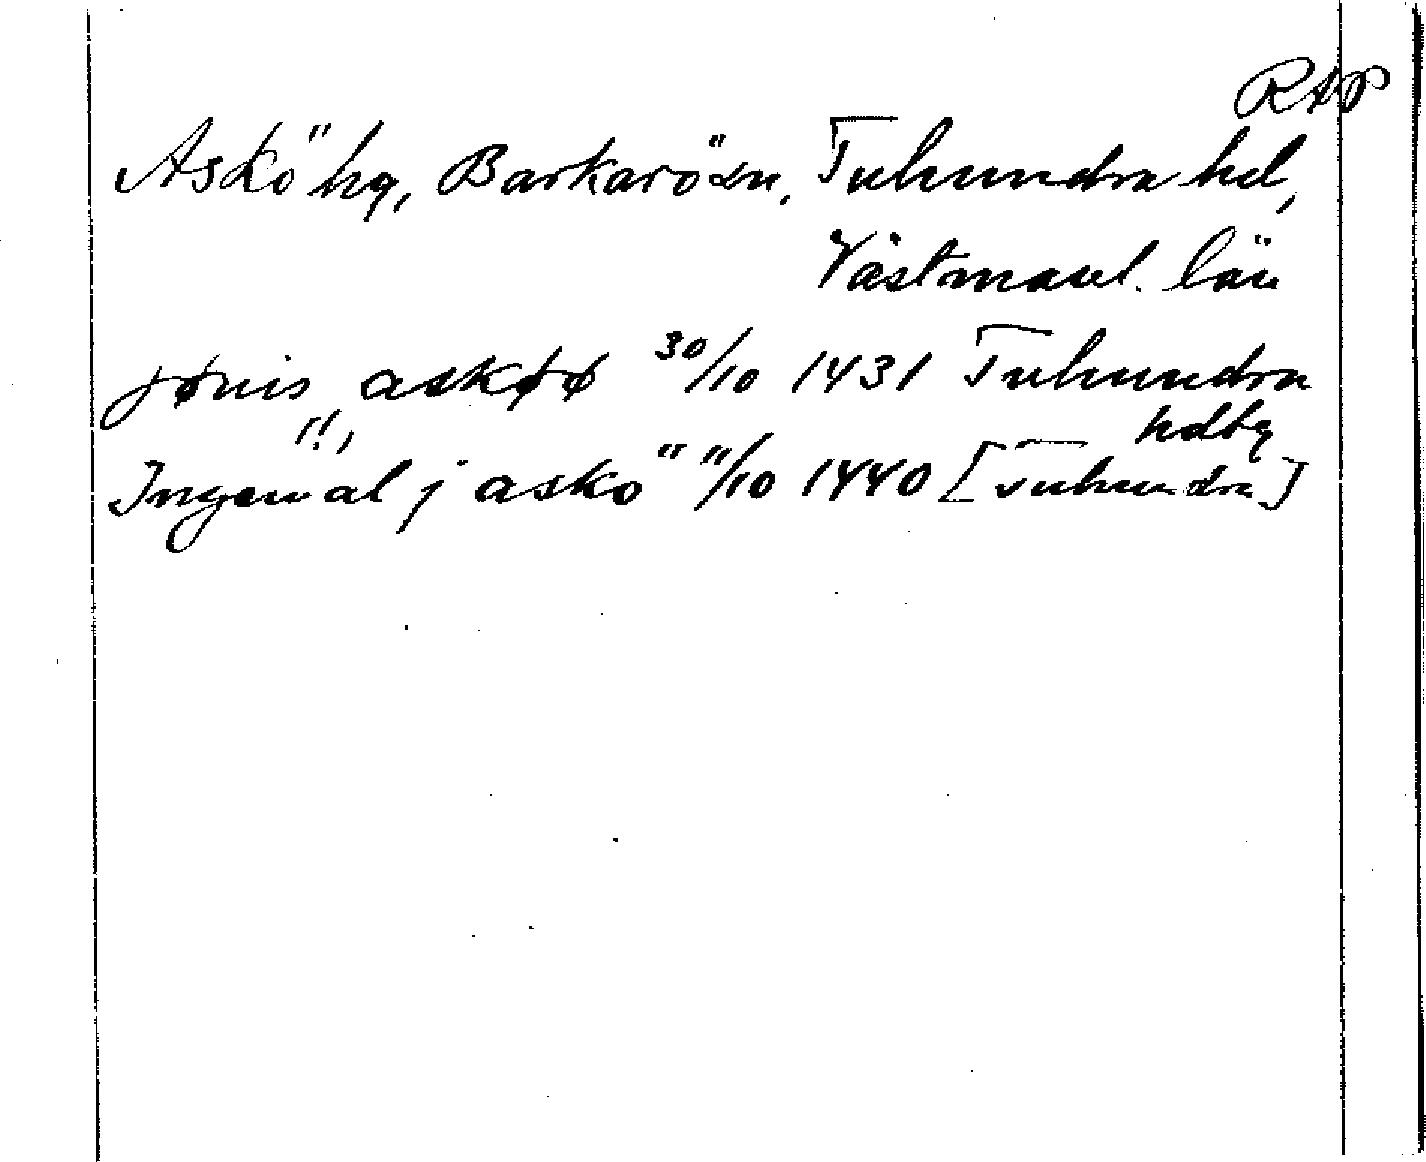 RAP
Askö hg, Barkarö sn, Tuhundra hd,
Västmanl. län
jønis askøø 30/10 1431 Tuhundra
(!), hdbg
Ingewal j askö 11/10 1440 [Tuhundra]